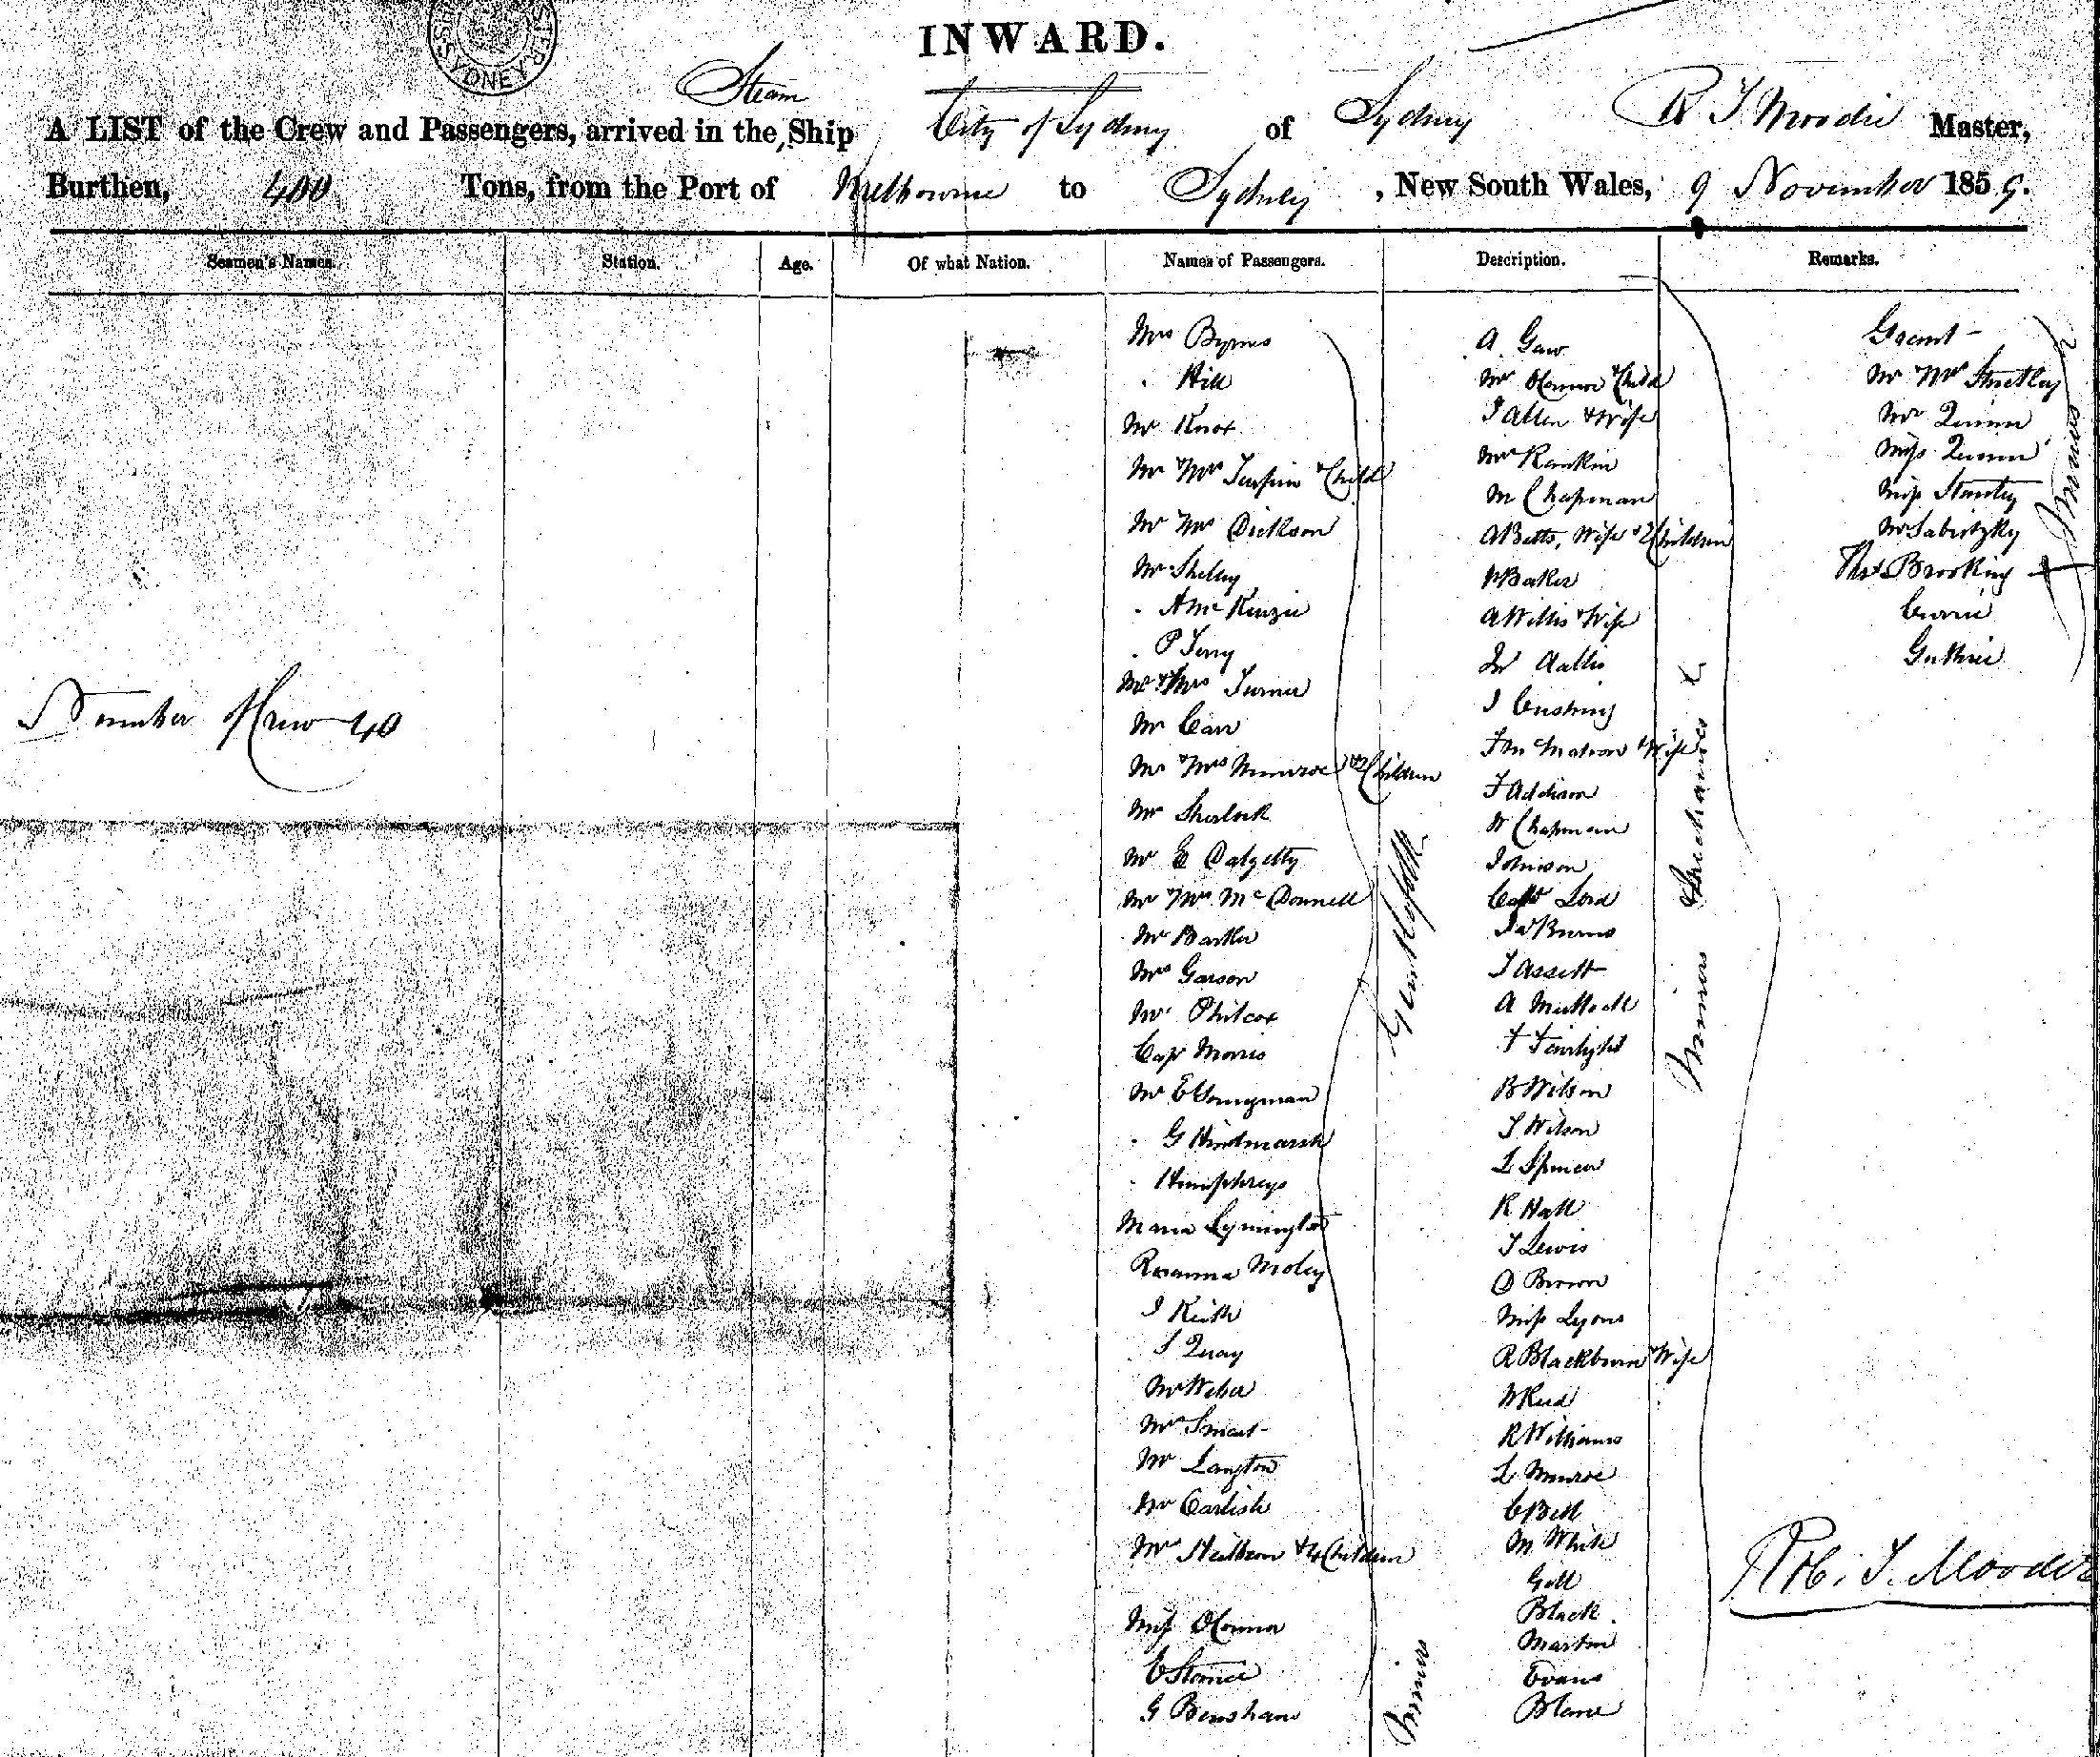 SYDNEY
INWARD.
Steam
A LIST of the Crew and Passengers, arrived in the Ship City of Sydney of Sydney R T Moodie Master,
Burthen, 400 Tons, from the Port of Melbourne to Sydney, New South Wales, 9 November 1859.
Seamen's Names. Station. Age. Of what Nation. Names of Passengers. Description. Remarks.
Number of Crew 40
Mrs Byrnes
. Hill
Mr Knox
Mr & Mrs Turpin & Child
Mr Mrs Dickson
Mr Shelley
. A McKenzie
. P Terry
Mr & Mrs Turner
Mr Carr
Mr & Mrs Munroe & Children
Mr Sherlock
Mr E Dalgetty
Mr & Mrs McDonnell
Mr Barker
Mrs Garson
Mr Philcox
Capt Morris
Mr E Youngman
. G Hindmarsh
. Humphreys
Maria Lymington
Rosanna Moley
J Keith
S Quay
Mr Weber
Mrs Smart
Mr Langton
Mr Carlisle
Mrs & 4 Children
Miss OConnor
G Benshaw
Gentlefolk
Miners
A Gaw
Mr OConnor & Child
J Allen & Wife
Mrs Rankin
M Chapman
A Betts, Wife & 2 Children
W Baker
A Willis & Wife
J Cushing
J McMahon & Wife
F Addison
W Chapman
Johnson
Capt Lord
J W Burns
J Assett
T Fairlight
B Wilson
J Wilson
L Spencer
R Hall
J Lewis
D Brown
Miss Lyons
R Blackburn & Wife
W Reid
R Williams
L Munroe
C Bell
M White
Gill
Black
Martin
Evans
Blane
Miners Mechanics &
Grant
Mr Mrs
Mr Quinn
Miss Quinn
Miss Stanley
Thos Brooking
Currie
Guthrie
Miners
Rt. T. Moodie